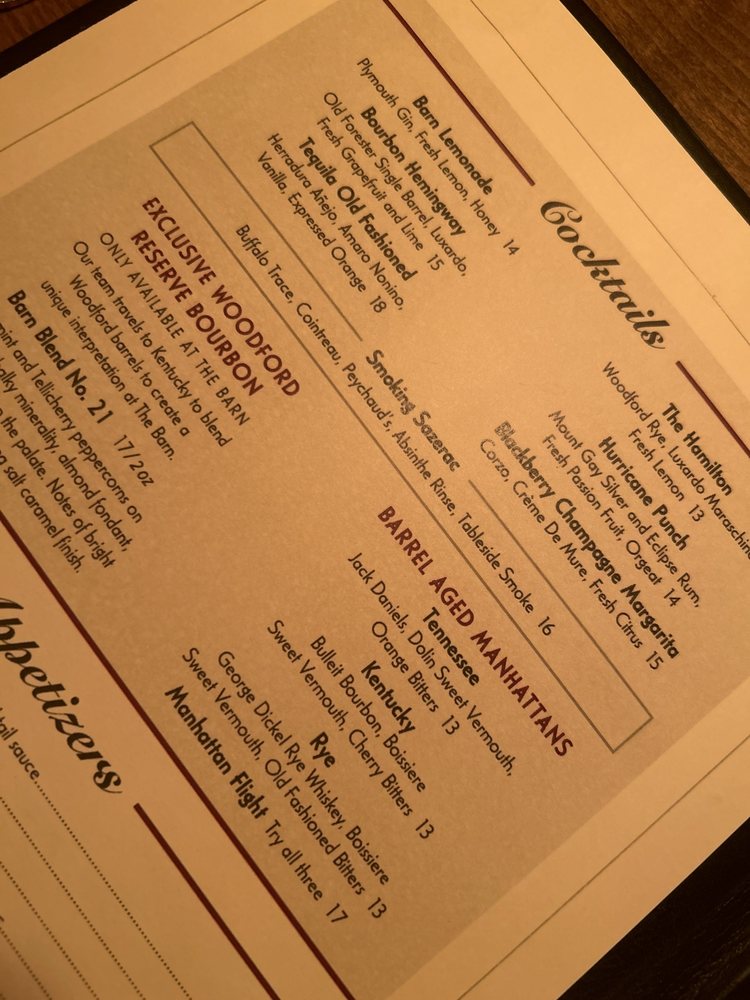 Cocktails
Barn Lemonade
Plymouth Gin, Fresh Lemon, Honey 14
Bourbon Hemingway
Old Forester Single Barrel, Luxardo,
Fresh Grapefruit and Lime 15
Tequila Old Fashioned
Herradura Añejo, Amaro Nonino,
Vanilla, Expressed Orange 18
The Hamilton
Woodford Rye, Luxardo Maraschino
Fresh Lemon 13
Hurricane Punch
Mount Gay Silver and Eclipse Rum,
Fresh Passion Fruit, Orgeat 14
Blackberry Champagne Margarita
Corzo, Crème De Mure, Fresh Citrus 15
Smoking Sazerac
Buffalo Trace, Cointreau, Peychaud's, Absinthe Rinse, Tableside Smoke 16
EXCLUSIVE WOODFORD
RESERVE BOURBON
ONLY AVAILABLE AT THE BARN
Our team travels to Kentucky to blend
Woodford barrels to create a
unique interpretation at The Barn.
Barn Blend No. 21 17/2oz
and Tellicherry peppercorns on
minerality, almond fondant,
the palate. Notes of bright
salt caramel finish.
BARREL AGED MANHATTANS
Tennessee
Jack Daniels, Dolin Sweet Vermouth,
Orange Bitters 13
Kentucky
Bulleit Bourbon, Boissiere
Sweet Vermouth, Cherry Bitters 13
Rye
George Dickel Rye Whiskey, Boissiere
Sweet Vermouth, Old Fashioned Bitters 13
Manhattan Flight Try all three 17
Appetizers
sauce